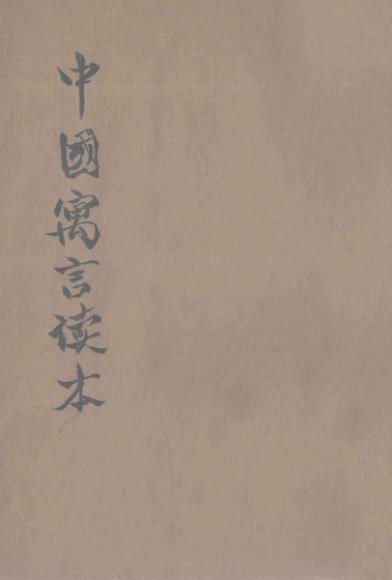 中國寓言读本